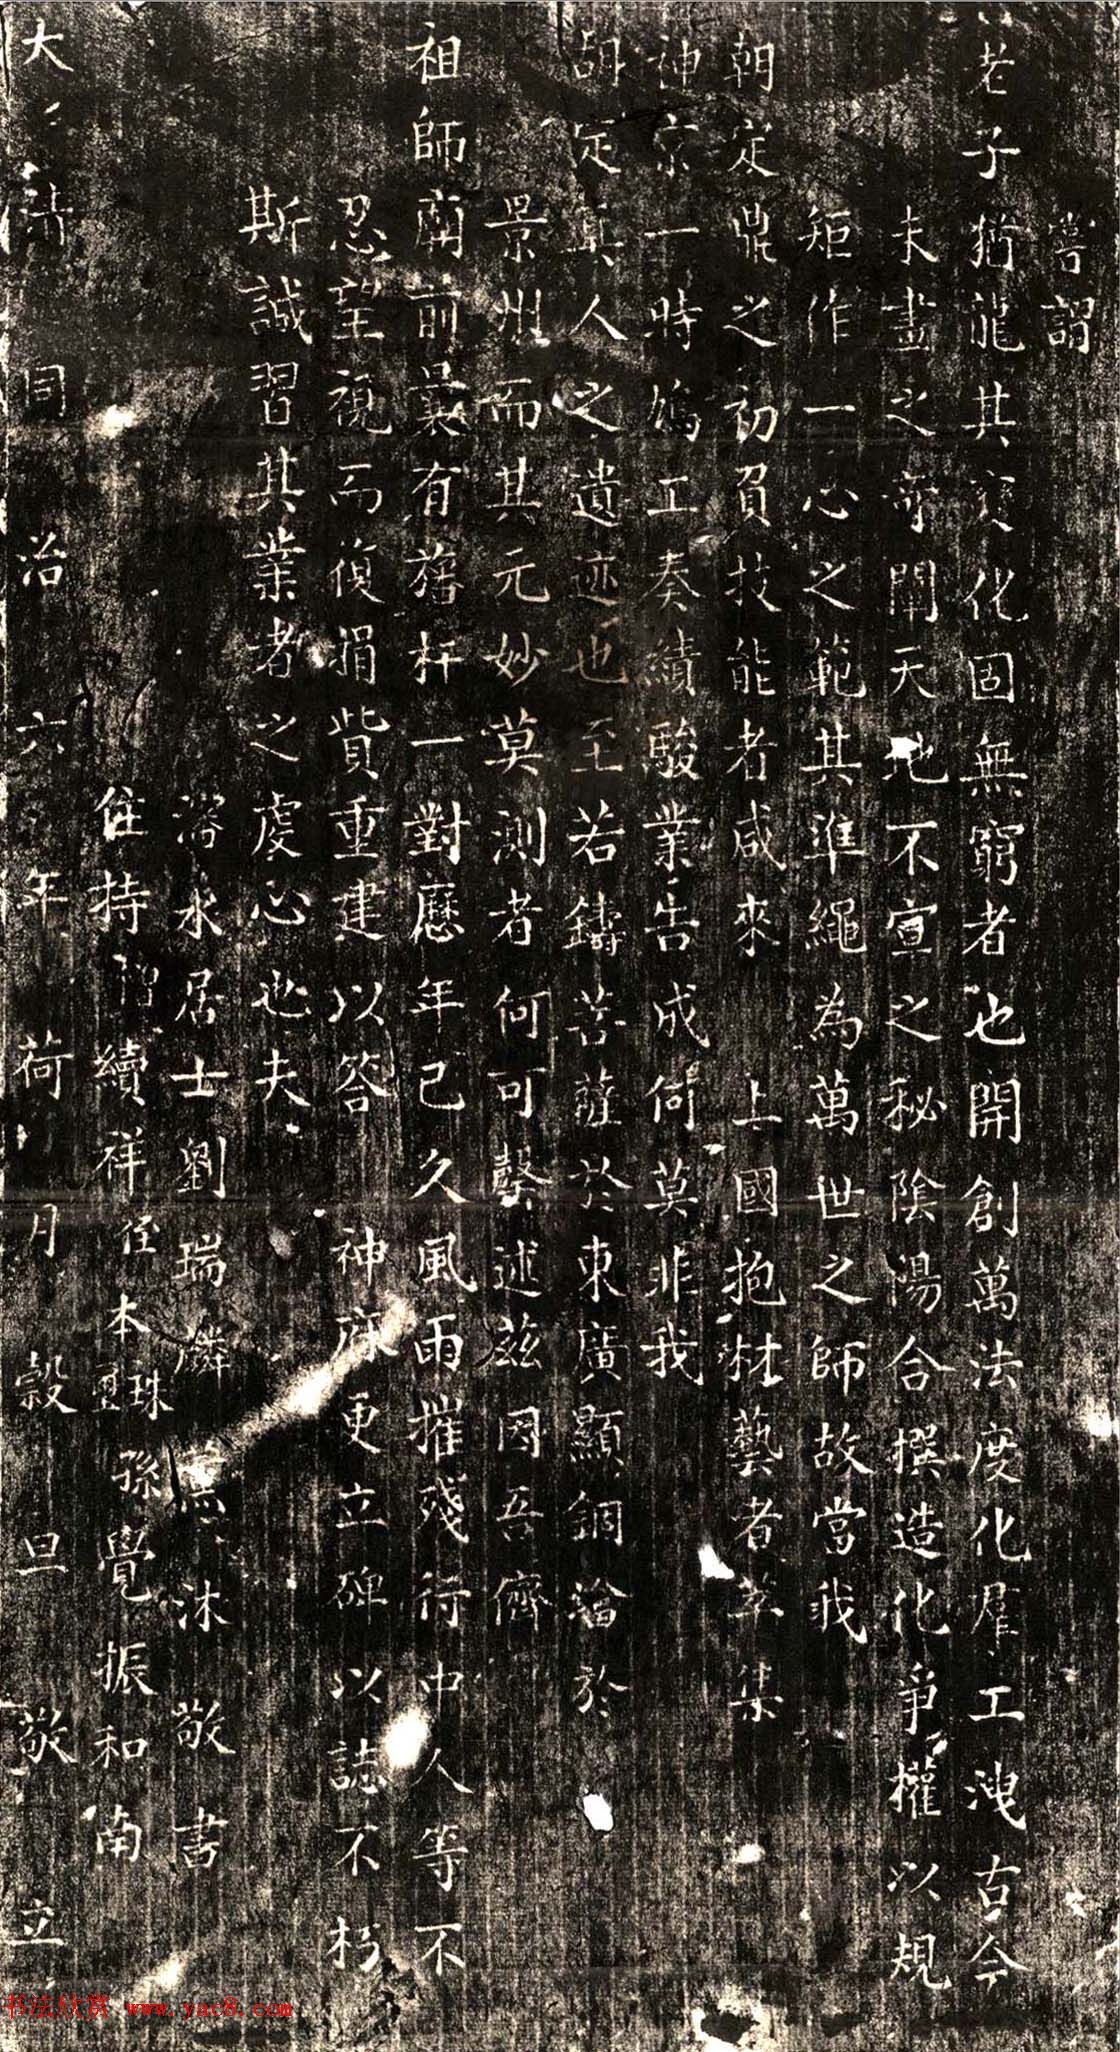 嘗謂
老子猶龍其変化固無窮者也開創萬法度化羣工洩古今
未畫之奇闡天地不宣之秘陰陽合撰造化爭權以規
矩作一心之範其準繩為萬世之師故當我
朝定鼎之初負技能者咸來上國抱材藝者萃集
神京一時鳩工奏績駿業告成何莫非我
胡定真人之遺迹也至若鑄菩薩於東廣顯銅
於
景州而其元妙莫測者何可罄述茲因吾儕
祖師廟前曩有舊杆一對歷年已久風雨摧殘行中人等不
忍望視而復捐貲重建以答神庥更立碑以誌不朽
斯誠習其業者之虔心也夫
永居士劉瑞麟沐敬書
住持僧續祥侄本珠孫覺振和南
大清同治六年荷月穀旦敬立
书法欣赏 www.yac8.com